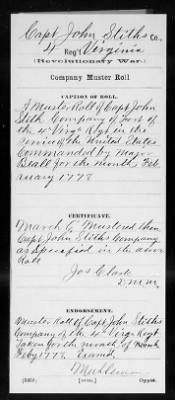 Capt John Stiths Co.
4 Reg't Virginia
(Revolutionary War.)
Company Muster Roll
CAPTION OF ROLL.
A Muster Roll of Capt John
Stith Company of Foot of
the 4th Virga Regt in the
Service of the United States
Commanded by Major
Beall for the Month Feb
ruary 1778
CERTIFICATE.
March 6 Mustered then
Capt John Stiths Company
as Specified in the above
Roll
Jos Clark
D.M.M.
ENDORSEMENT.
Muster Roll of Capt John Stiths
Company of the 4th Virga Regt
Taken for the month of
Feby 1778. Examd.
Copyist.